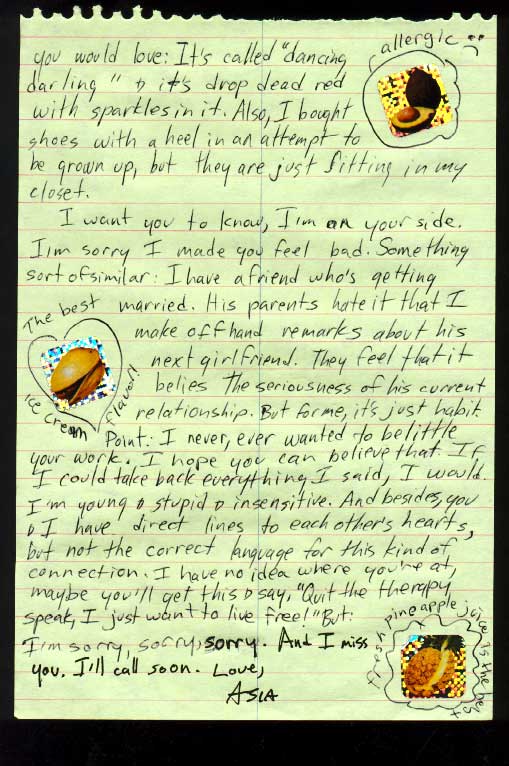 you would love: It's called "dancing
darling" & it's drop dead red
with sparkles in it. Also, I bought
shoes with a heel in an attempt to
be grown up, but they are just sitting in my
closet.
allergic
I want you to know, I'm on your side.
I'm sorry I made you feel bad. Something
sort of similar: I have a friend who's getting
married. His parents hate it that I
make offhand remarks about his
next girlfriend. They feel that it
belies the seriousness of his current
relationship. But for me, it's just habit.
The best
ice cream flavor!
Point: I never, ever wanted to belittle
your work. I hope you can believe that. If
I could take back everything I said, I would.
I'm young & stupid & insensitive. And besides, you
& I have direct lines to each other's hearts,
but not the correct language for this kind of
connection. I have no idea where you're at,
maybe you'll get this & say, "Quit the therapy
speak, I just want to live free!" But:
I'm sorry, sorry, sorry. And I miss
you. I'll call soon. Love,
ASIA
fresh pineapple juice is the best